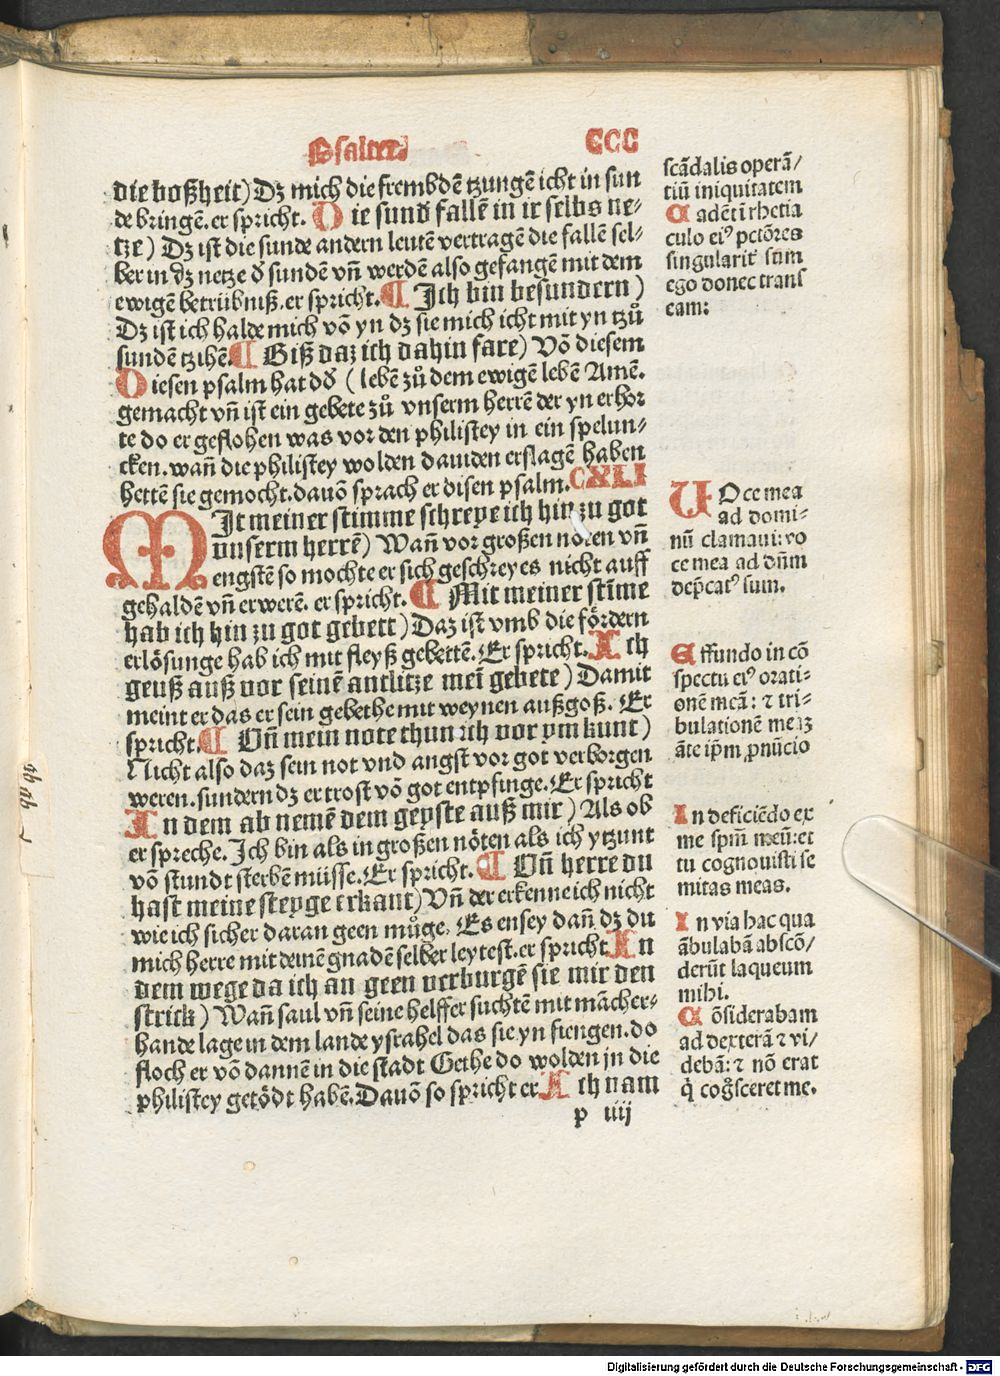 Psalter.
CCC
die boßheit) Dz mich die frembdē tzungē icht in sun
de bringē. er spricht. Die sund fallē in ir selbs ne⸗
tze) Dz ist die sunde andern leutē vertragē die fallē sel⸗
ber in dz netze d̕ sundē vn̄ werdē also gefangē mit dem
ewigē betrübniß. er spricht. ¶ Ich bin besundern)
Dz ist ich halde mich vō yn dz sie mich icht mit yn tzů
sundē tzihē. ¶ Biß daz ich dahin fare) Vō diesem
Diesen psalm hat dd̕ (lebē zů dem ewigē lebē Amē.
gemacht vn̄ ist ein gebete zů vnserm herrē der yn erhor
te do er geflohen was vor den philistey in ein spelun⸗
cken. wan̄ die philistey wolden dauiden erslagē haben
hettē sie gemocht. dauō sprach er disen psalm. CXLI
MIt meiner stimme schreye ich hin zu got
vnserm herrē) Wan̄ vor großen noten vn̄
engstē so mochte er sich geschreyes nicht auff
gehaldē vn̄ erwerē. er spricht. ¶ Mit meiner stīme
hab ich hin zu got gebett) Daz ist vmb die fördern
erlösunge hab ich mit fleyß gebettē. Er spricht. Ich
geuß auß vor seinē antlitze mei᷑ gebete) Damit
meint er das er sein gebethe mit weynen außgoß. Er
spricht. ¶ Vn̄ mein note thun ich vor ym kunt)
Nicht also daz sein not vnd angst vor got verborgen
weren. sundern dz er trost vō got entpfinge. Er spricht
In dem ab nemē dem geyste auß mir) Als ob
er spreche. Ich bin als in großen nöten als ich ytzunt
vō stundt sterbē müsse. Er spricht. ¶ Vn̄ herre du
hast meine steyge erkant) Vn̄ der erkenne ich nicht
wie ich sicher daran geen můge. Es ensey dan̄ dz du
mich herre mit deinē gnadē selber leytest. er spricht. In
dem wege da ich an geen verburgē sie mir den
strick) Wan̄ saul vn̄ seine helffer suchtē mit mācher⸗
hande lage in dem lande ysrahel das sie yn fiengen. do
floch er vō dannē in die stadt Gethe do wolden jn die
philistey getödt habē. Dauō so spricht er Ich nam
p iiij
scādalis operā/
tiū iniquitatem
Cadēt ī rhetia
culo ei⁹ pctōres
singularit̕ sum
ego donec trans
eam:
VOce mea
ad domi⸗
nū clamaui: vo
ce mea ad dn̄m
dep̄cat⁹ sum.
Effundo in cō
spectu ei⁹ orati⸗
onē meā: ⁊ tri⸗
bulationē meaꝫ
āte ip̄m ꝓnūcio
In deficiēdo ex
me spm̄ meū: et
tu cognouisti se
mitas meas.
In via hac qua
ābulabā abscō/
derūt laqueum
mihi.
Cōsiderabam
ad dexterā ⁊ vi/
debā: ⁊ nō erat
q̇ cog̊sceret me.
Digitalisierung gefördert durch die Deutsche Forschungsgemeinschaft - DFG